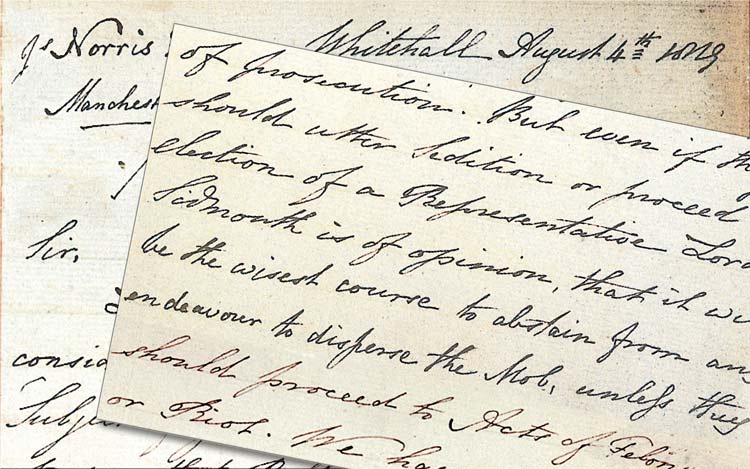 Js Norris
Whitehall August 4th 1819
Manchest
Sir,
consid
Subje
of prosecution. But even if the
should utter Sedition or proceed
election of a Representative Lord
Sidmouth is of opinion, that it wi
be the wisest course to abstain from an
endeavour to disperse the Mob, unless they
should proceed to Acts of Felon
or Riot. We ha